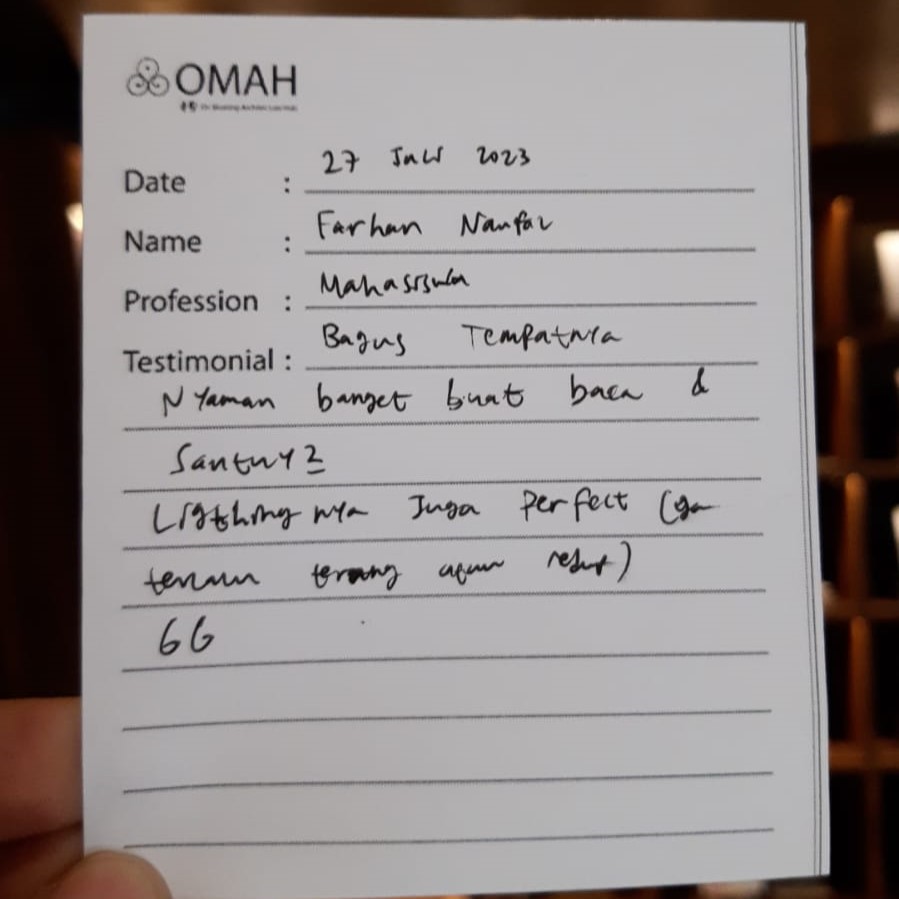 OMAH
Date : 27 Juli 2023
Name : Farhan Naufal
Profession : Mahasiswa
Testimonial : Bagus Tempatnya
Nyaman banget buat baca &
Santuy2
Ligthingnya Juga Perfect (ga
terlalu terang ataupun redup)
GG